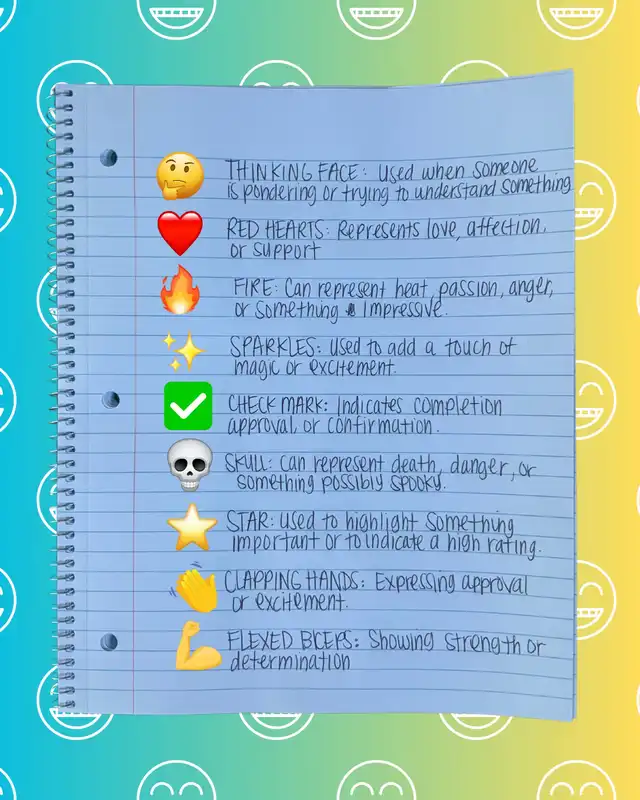 THINKING FACE: Used when someone
is pondering or trying to understand something.
RED HEARTS: Represents love, affection,
or support
FIRE: Can represent heat, passion, anger,
or something impressive.
SPARKLES: Used to add a touch of
magic or excitement.
CHECK MARK: Indicates completion
approval, or confirmation.
SKULL: Can represent death, danger, or
something possibly spooky.
STAR: Used to highlight something
important or to indicate a high rating.
CLAPPING HANDS: Expressing approval
or excitement.
FLEXED BICEPS: Showing strength or
determination